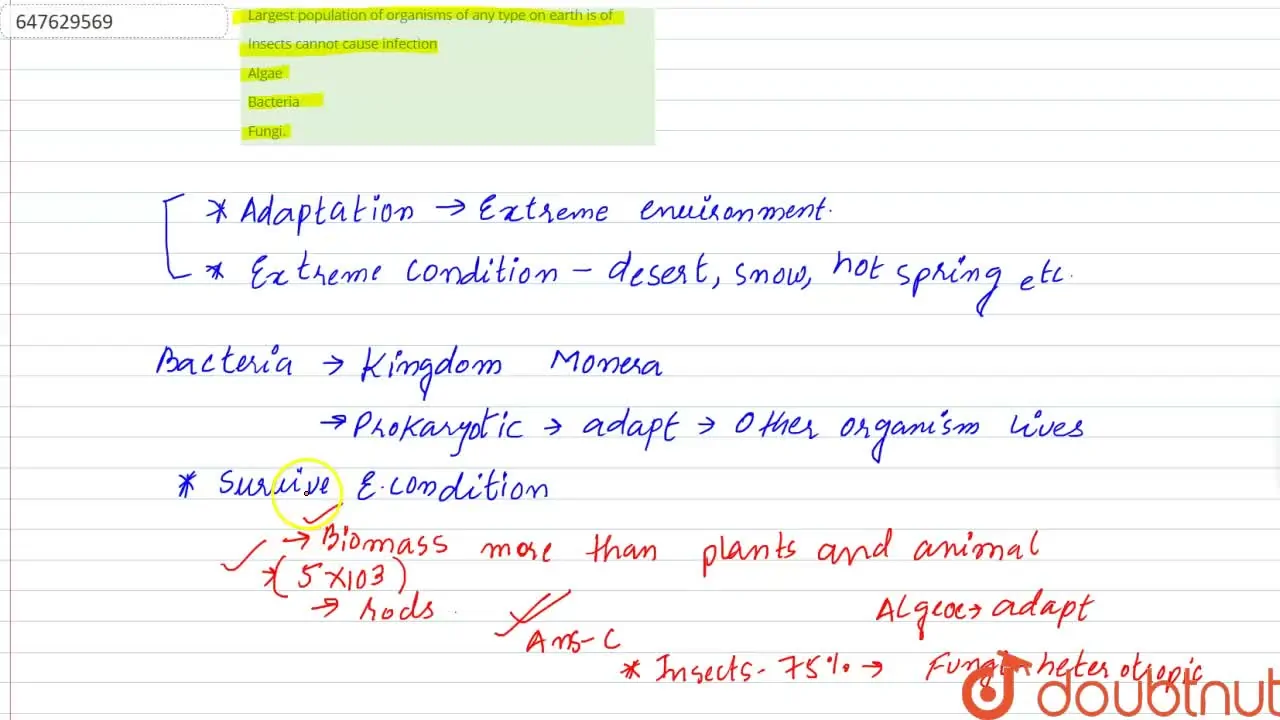 647629569
Largest population of organisms of any type on earth is of
Insects cannot cause infection
Algae
Bacteria
Fungi.
* Adaptation → Extreme environment.
* Extreme condition - desert, snow, hot spring etc.
Bacteria → Kingdom Monera
→ Prokaryotic → adapt → Other organism lives
* Survive E.condition
→ Biomass more than plants and animal
*(5×103)
→ rods
Algeae → adapt
Ans-C
* Insects - 75% → Fungi heterotropic
doubtnut